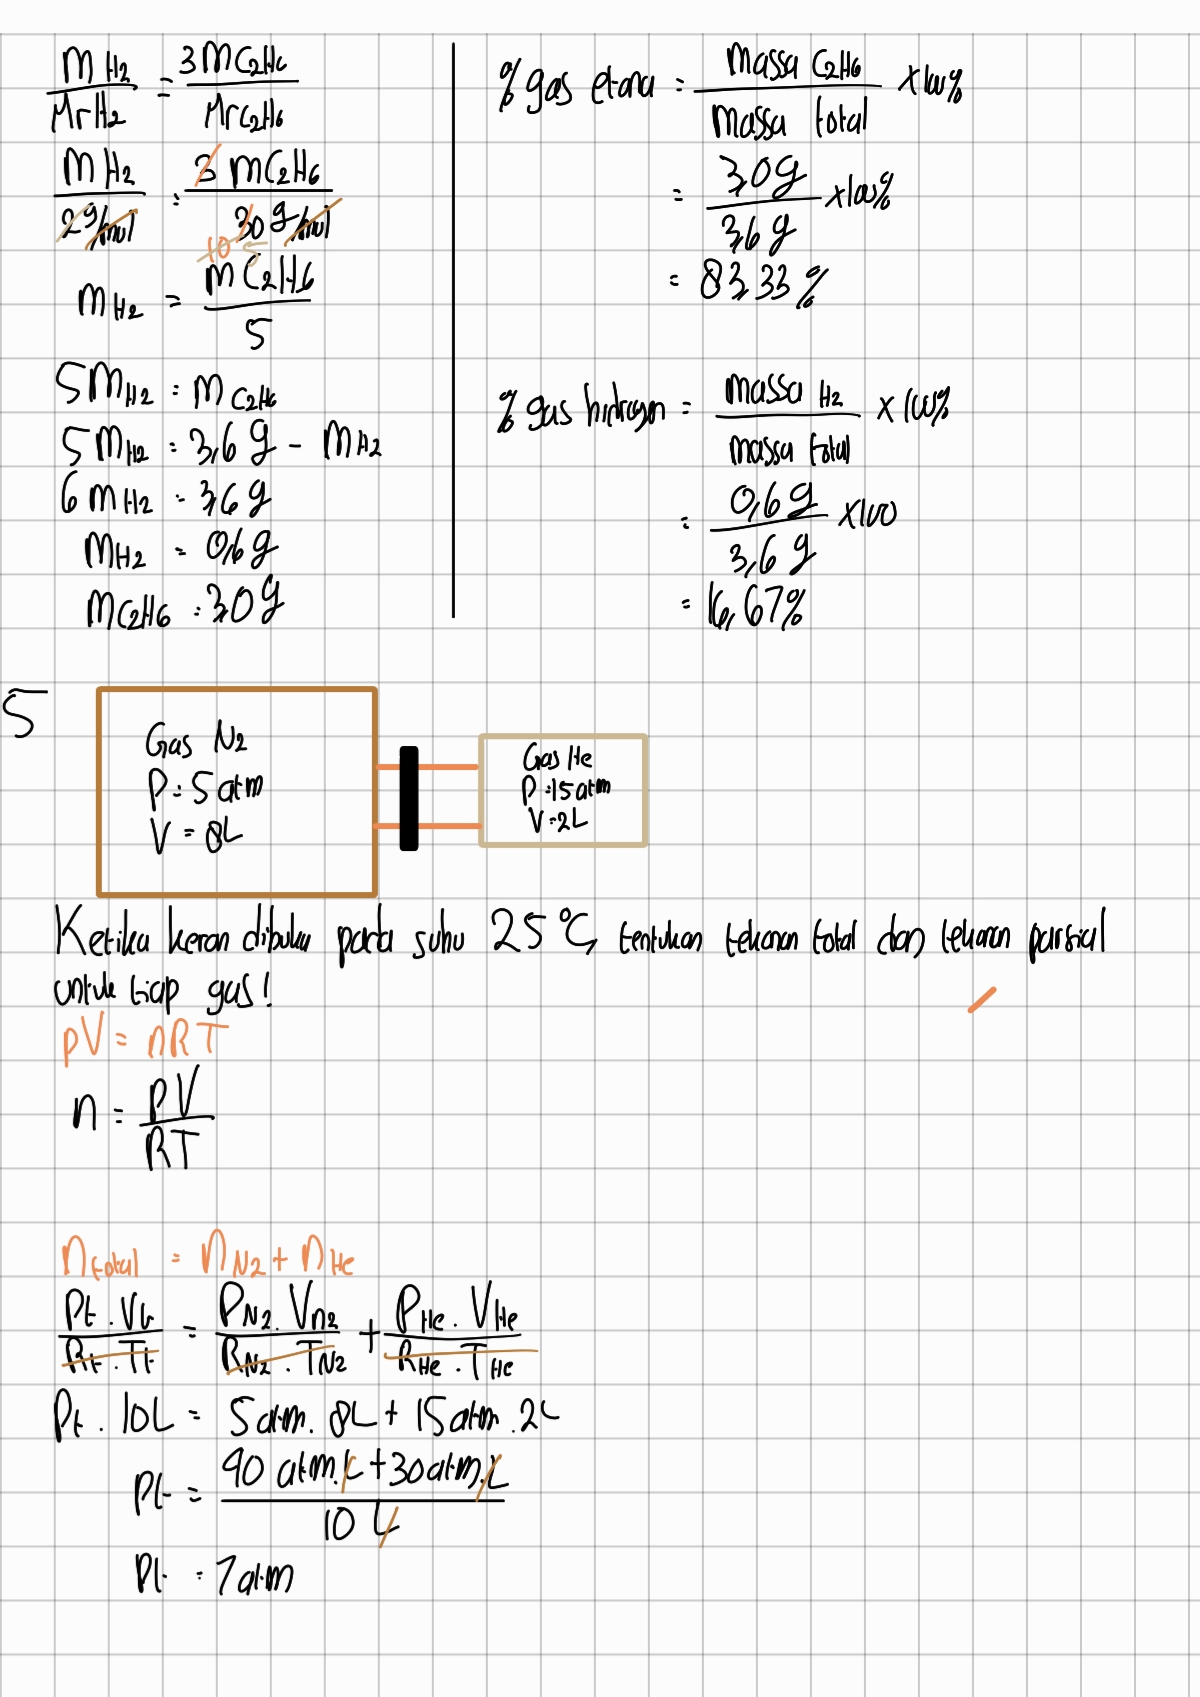 mH2/MrH2 = 3mC2H6/MrC2H6
mH2/2g/mol = 3 mC2H6/30 g/mol
10 5
mH2 = mC2H6/5
5mH2 = mC2H6
5mH2 = 3,6 g - mH2
6mH2 = 3,6 g
mH2 = 0,6 g
mC2H6 = 3,0 g
% gas etana = massa C2H6/massa total x100%
= 3,0 g/3,6 g x100%
= 83,33 %
% gas hidrogen = massa H2/massa total x 100%
= 0,6 g/3,6 g x100
= 16,67%
5
Gas N2
P = 5 atm
V = 8L
Gas He
P = 15 atm
V = 2L
Ketika keran dibuka pada suhu 25°C, tentukan tekanan total dan tekanan parsial
untuk tiap gas!
pV = nRT
n = pV/RT
ntotal = nN2 + nHe
Pt . Vt/Rt . Tt = PN2 . Vn2/RN2 . TN2 + PHe . VHe/RHe . THe
Pt . 10L = 5 atm . 8L + 15 atm . 2L
Pt = 40 atm.L + 30 atm.L/10 L
Pt = 7 atm